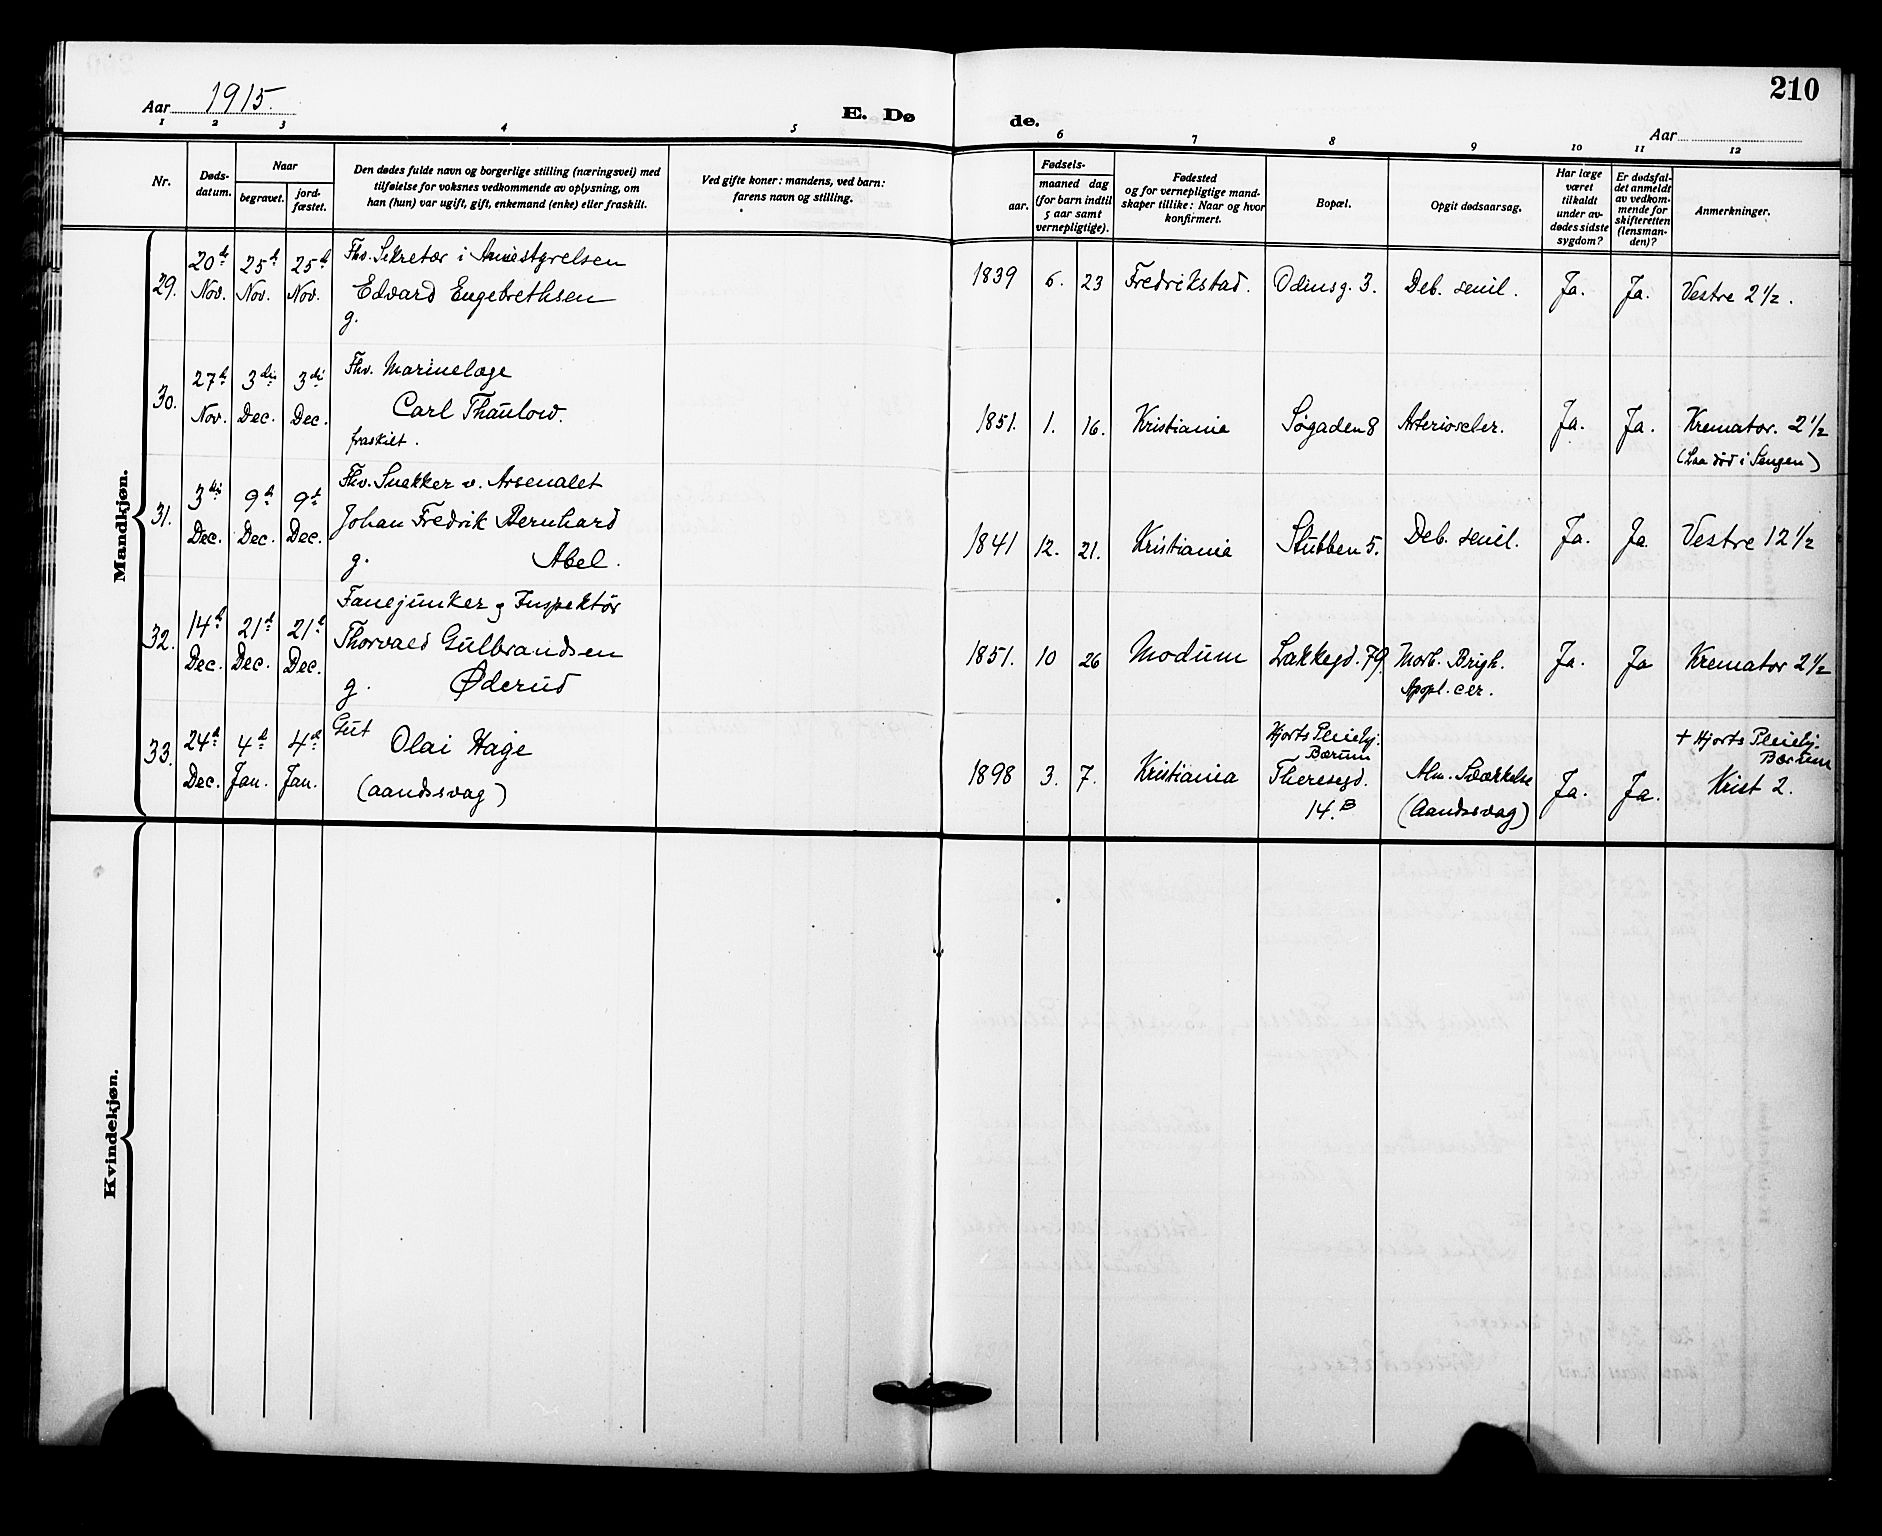 210
Aar 1915.
E. Døde.
Aar
1 2 3 4 5 6 7 8 9 10 11 12
Nr.
Døds-
datum.
Naar
begravet.
jord-
fæstet.
Den dødes fulde navn og borgerlige stilling (næringsvei) med
tilføielse for voksnes vedkommende av oplysning, om
han (hun) var ugift, gift, enkemand (enke) eller fraskilt.
Ved gifte koner: mandens, ved barn:
farens navn og stilling.
Fødsels-
aar.
maaned dag
(for barn indtil
5 aar samt
vernepligtige).
Fødested
og for vernepligtige mand-
skaper tillike: Naar og hvor
konfirmert.
Bopæl.
Opgit dødsaarsag.
Har læge
været
tilkaldt
under av-
dødes sidste
sygdom?
Er dødsfal-
det anmeldt
av vedkom-
mende for
skifteretten
(lensman-
den)?
Anmerkninger.
Mandkjøn.
29.
20de Nov.
25de Nov.
25de Nov.
Fhv. Sekretær i Armestyrelsen
Edvard Engebrethsen
g.
1839 6. 23 Fredrikstad. Odinsg. 3. Deb. senil. Ja. Ja. Vestre 2 1/2.
30.
27de Nov.
3die Dec.
3die Dec.
Fhv. Marinelæge
Carl Thaulow.
fraskilt.
1851. 1. 16. Kristiania Søgaden 8 Arterioscler. Ja. Ja. Kremator. 2 1/2
(Laa død i Sengen)
31.
3die Dec.
9de Dec.
9de Dec.
Fhv. Snekker v. Arsenalet
Johan Fredrik Bernhard
g. Abel.
1841 12. 21. Kristiania Stubben 5. Deb. senil. Ja. Ja. Vestre 12 1/2
32.
14de Dec.
21de Dec.
21de Dec.
Fanejunker og Inspektør
Thorvald Gulbrandsen
g. Øderud
1851. 10 26 Modum Lakkegd. 79. Morb. Brigh. Ja. Ja Kremator 2 1/2
Apopl. cer.
33.
24de Dec.
4de Jan.
4de Jan.
Gut
Olai Hage
(aandssvag)
1898 3. 7. Kristiania
Hjorts Pleiehj.
Bærum
Theresegd.
14.B
Alm. Svækkelse
(Aandssvag)
Ja. Ja.
+ Hjorts Pleiehj.
Bærum
Krist 2.
Kvindekjøn.